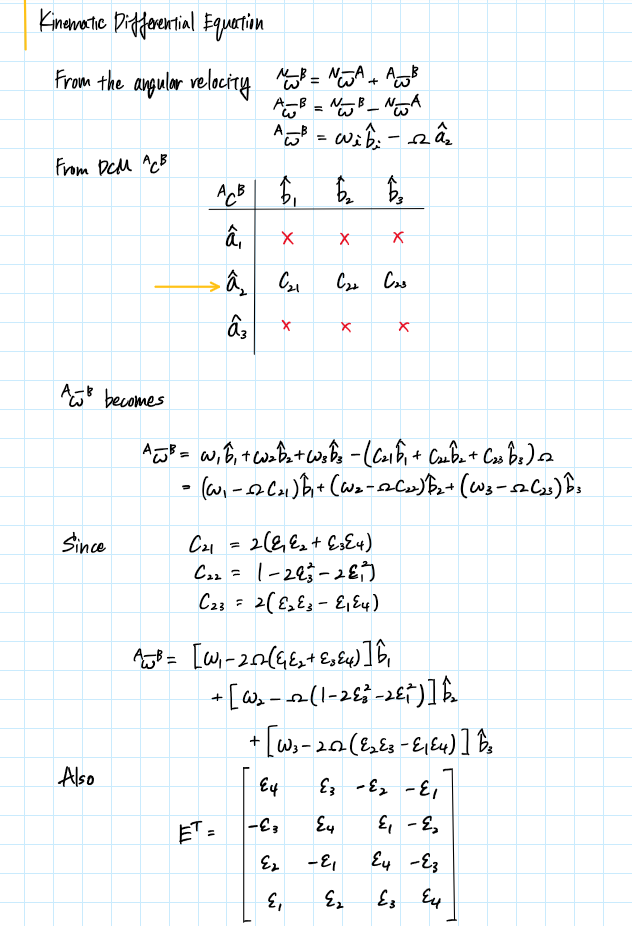 Kinematic Differential Equation
From the angular velocity ᴺω̄ᴮ = ᴺω̄ᴬ + ᴬω̄ᴮ
ᴬω̄ᴮ = ᴺω̄ᴮ − ᴺω̄ᴬ
ᴬω̄ᴮ = ωᵢb̂ᵢ − Ω â₂
From DCM ᴬCᴮ
ᴬCᴮ b̂₁ b̂₂ b̂₃
â₁ × × ×
→ â₂ C₂₁ C₂₂ C₂₃
â₃ × × ×
ᴬω̄ᴮ becomes
ᴬω̄ᴮ = ω₁b̂₁ + ω₂b̂₂ + ω₃b̂₃ − (C₂₁b̂₁ + C₂₂b̂₂ + C₂₃b̂₃)Ω
= (ω₁ − ΩC₂₁)b̂₁ + (ω₂ − ΩC₂₂)b̂₂ + (ω₃ − ΩC₂₃)b̂₃
Since C₂₁ = 2(ε₁ε₂ + ε₃ε₄)
C₂₂ = 1 − 2ε₃² − 2ε₁²)
C₂₃ = 2(ε₂ε₃ − ε₁ε₄)
ᴬω̄ᴮ = [ω₁ − 2Ω(ε₁ε₂ + ε₃ε₄)]b̂₁
+ [ω₂ − Ω(1 − 2ε₃² − 2ε₁²)]b̂₂
+ [ω₃ − 2Ω(ε₂ε₃ − ε₁ε₄)]b̂₃
Also
ε₄ ε₃ −ε₂ −ε₁
−ε₃ ε₄ ε₁ −ε₂
Eᵀ =
ε₂ −ε₁ ε₄ −ε₃
ε₁ ε₂ ε₃ ε₄